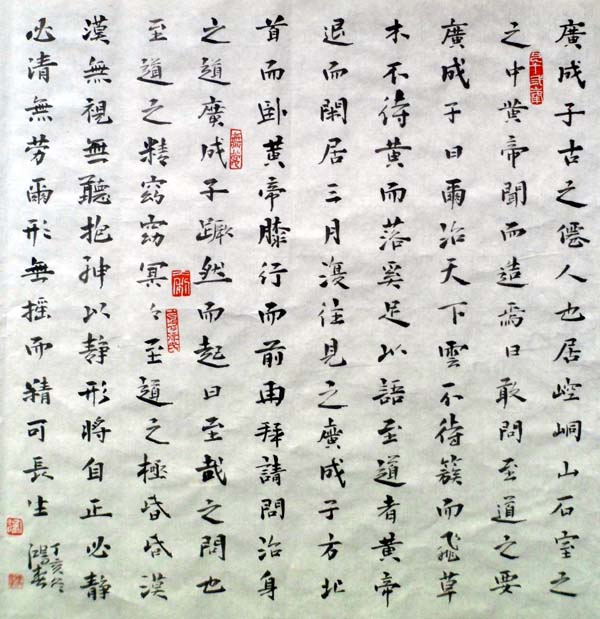 廣成子古之僊人也居崆峒山石室之
之中黄帝聞而造焉曰敢問至道之要
廣成子曰爾治天下雲不待簇而飛草
木不待黄而落奚足以語至道者黄帝
退而閑居三月復往見之廣成子方北
首而卧黄帝膝行而前再拜請問治身
之道廣成子蹶然而起曰至哉之問也
至道之精窈窈冥々至道之極昏昏漠
漠無視無聽抱神以静形將自正必静
必清無劳爾形無摇而精可長生
丁亥冬